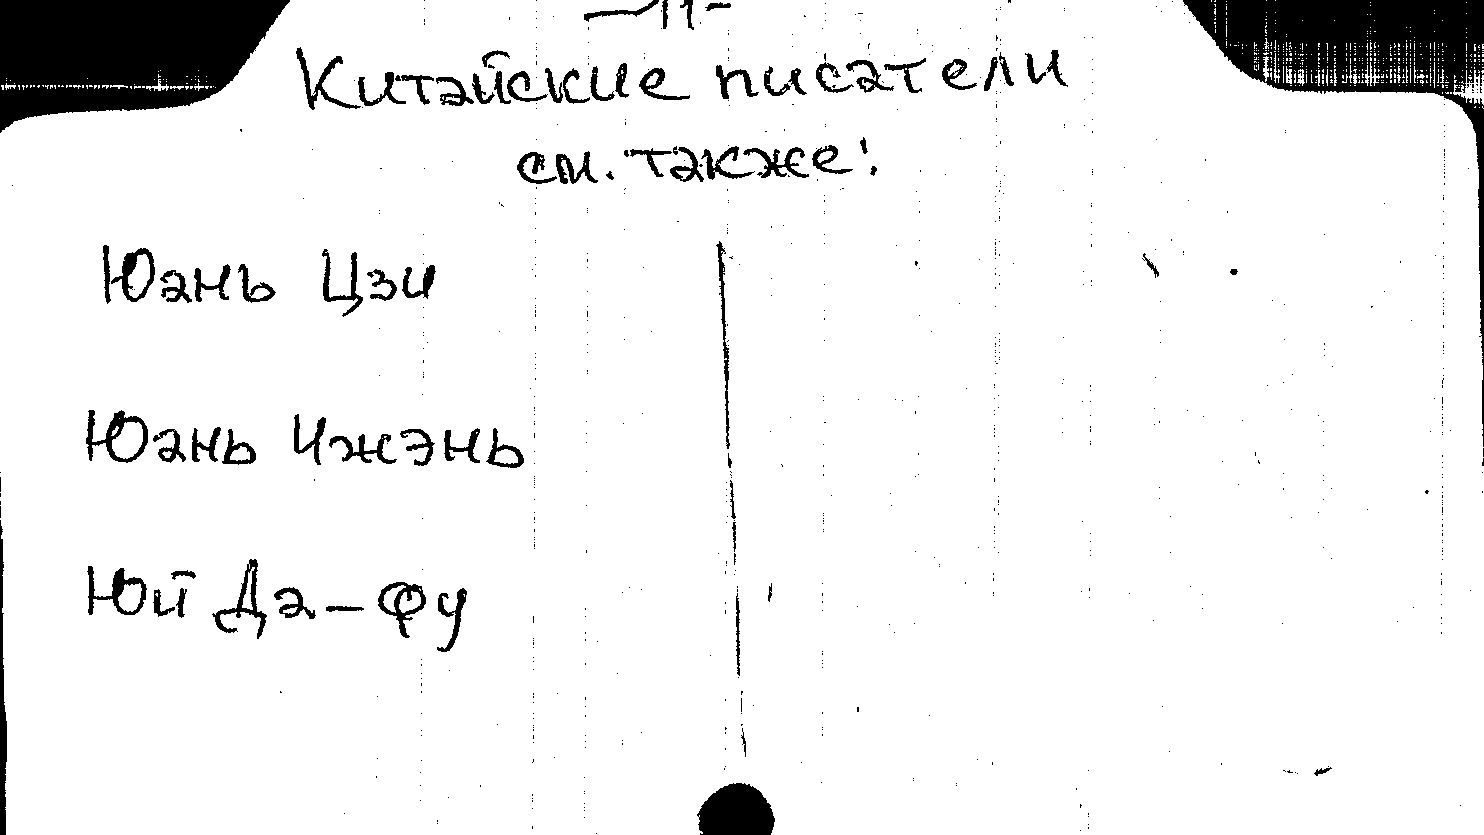 —11-
Китайские писатели
см. также:
Юань Цзи
Юань Чжэнь
Юй Да-фу